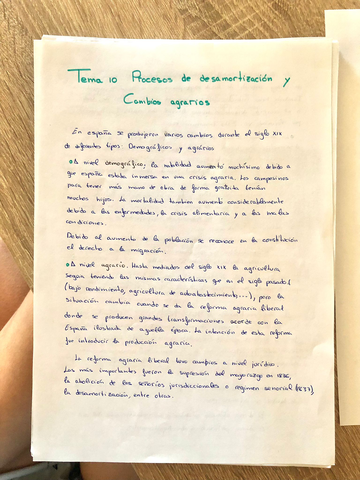 Tema 10 Procesos de desamortización y
Cambios agrarios
En españa se produjeron varios cambios durante el siglo XIX
de diferentes tipos. Demográficos y agrarios
A nivel demográfico, la natalidad aumentó muchísimo debido a
que españa estaba inmersa en una crisis agraria. Los campesinos
para tener más mano de obra de forma gratuita tenían
muchos hijos. La mortalidad tambien aumentó considerablemente
debido a las enfermedades, la crisis alimentaria y a las malas
condiciones.
Debido al aumento de la población se reconoce en la constitución
el derecho a la migración.
A nivel agrario. Hasta mediados del siglo XIX la agricultura
seguía teniendo las mismas características que en el siglo pasado
(bajo rendimiento, agricultura de autoabastecimiento...), pero la
situación cambia cuando se da la reforma agraria liberal
donde se producen grandes transformaciones acorde con la
España ilustrada de aquella época. La intención de esta reforma
fue introducir la producción agraria.
La reforma agraria liberal tuvo cambios a nivel jurídico.
Los más importantes fueron la supresión del mayorazgo en 1836,
la abolición de los señoríos jurisdiccionales o régimen señorial (1837),
la desamortización, entre otras.